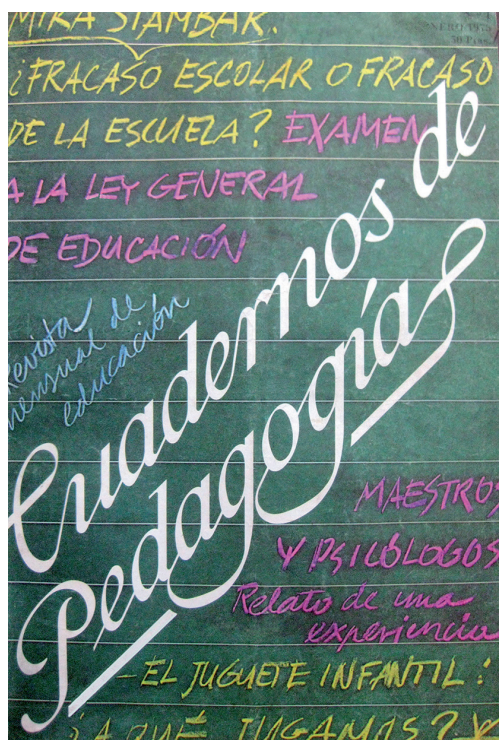 MIRA STAMBAK.
1
ENERO 1975
50 Ptas.
¿FRACASO ESCOLAR O FRACASO
DE LA ESCUELA? EXAMEN
A LA LEY GENERAL
DE EDUCACIÓN
Revista
mensual de
educación
Cuadernos de
Pedagogía
MAESTROS
Y PSICÓLOGOS
Relato de una
experiencia
- EL JUGUETE INFANTIL:
¿A QUÉ JUGAMOS?